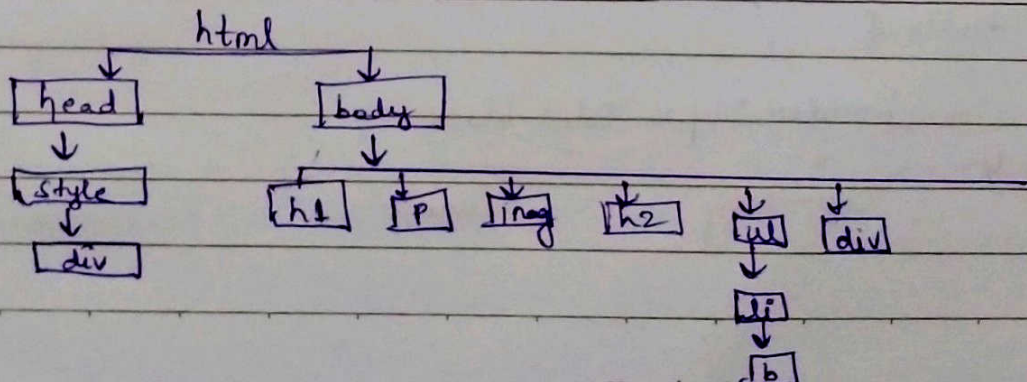 html
head body
style h1 p img h2 ul div
div
li
b